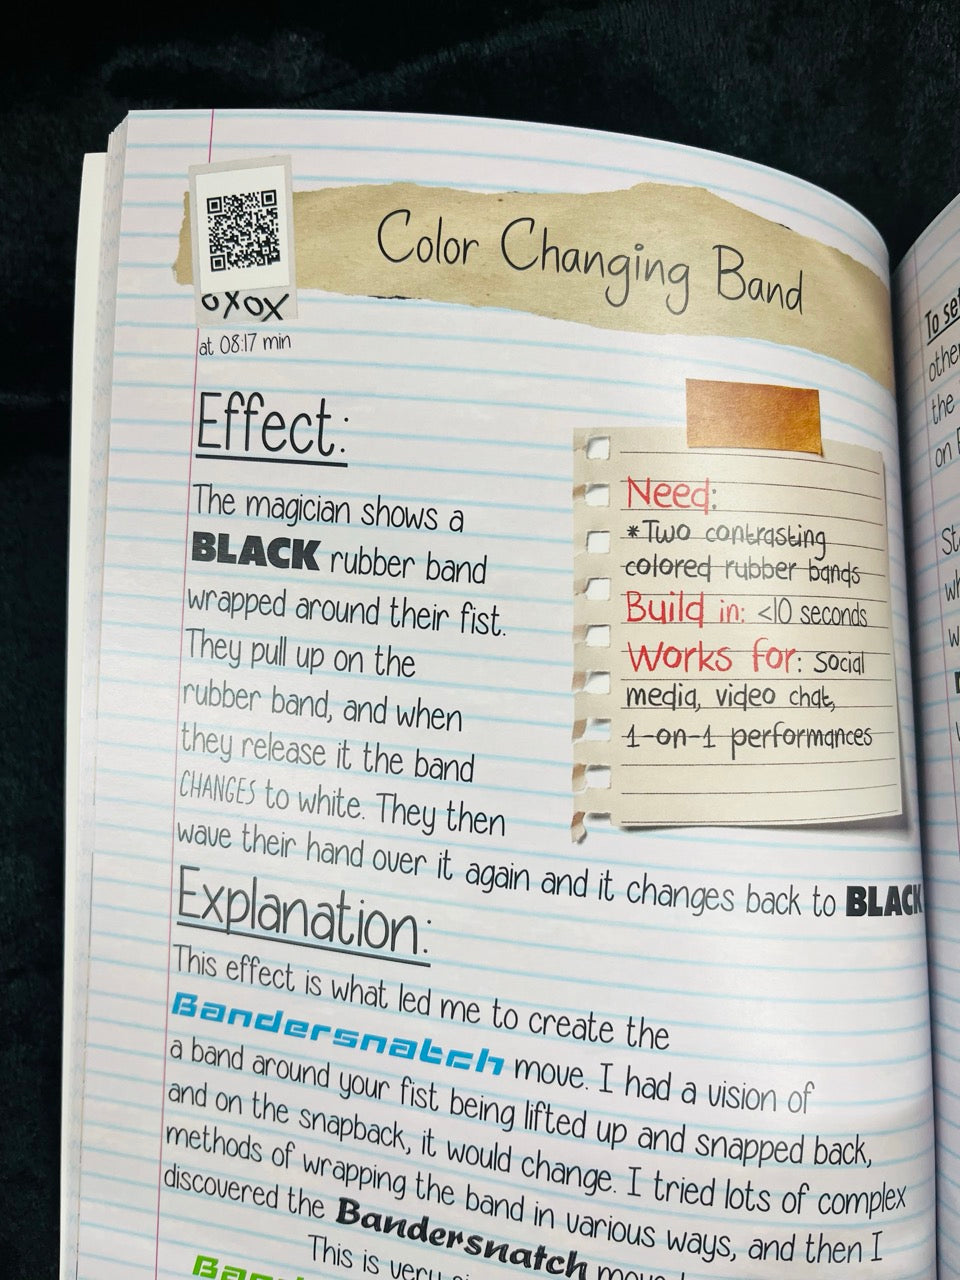 Color Changing Band
OXOX
at 08:17 min
Effect:
The magician shows a
BLACK rubber band
wrapped around their fist.
They pull up on the
rubber band, and when
they release it the band
CHANGES to white. They then
wave their hand over it again and it changes back to BLACK
Need:
*Two contrasting
colored rubber bands
Build in: <10 seconds
Works for: social
media, video chat,
1-on-1 performances
Explanation:
This effect is what led me to create the
Bandersnatch move. I had a vision of
a band around your fist being lifted up and snapped back,
and on the snapback, it would change. I tried lots of complex
methods of wrapping the band in various ways, and then I
discovered the Bandersnatch move
This is very
To set
other
the
on